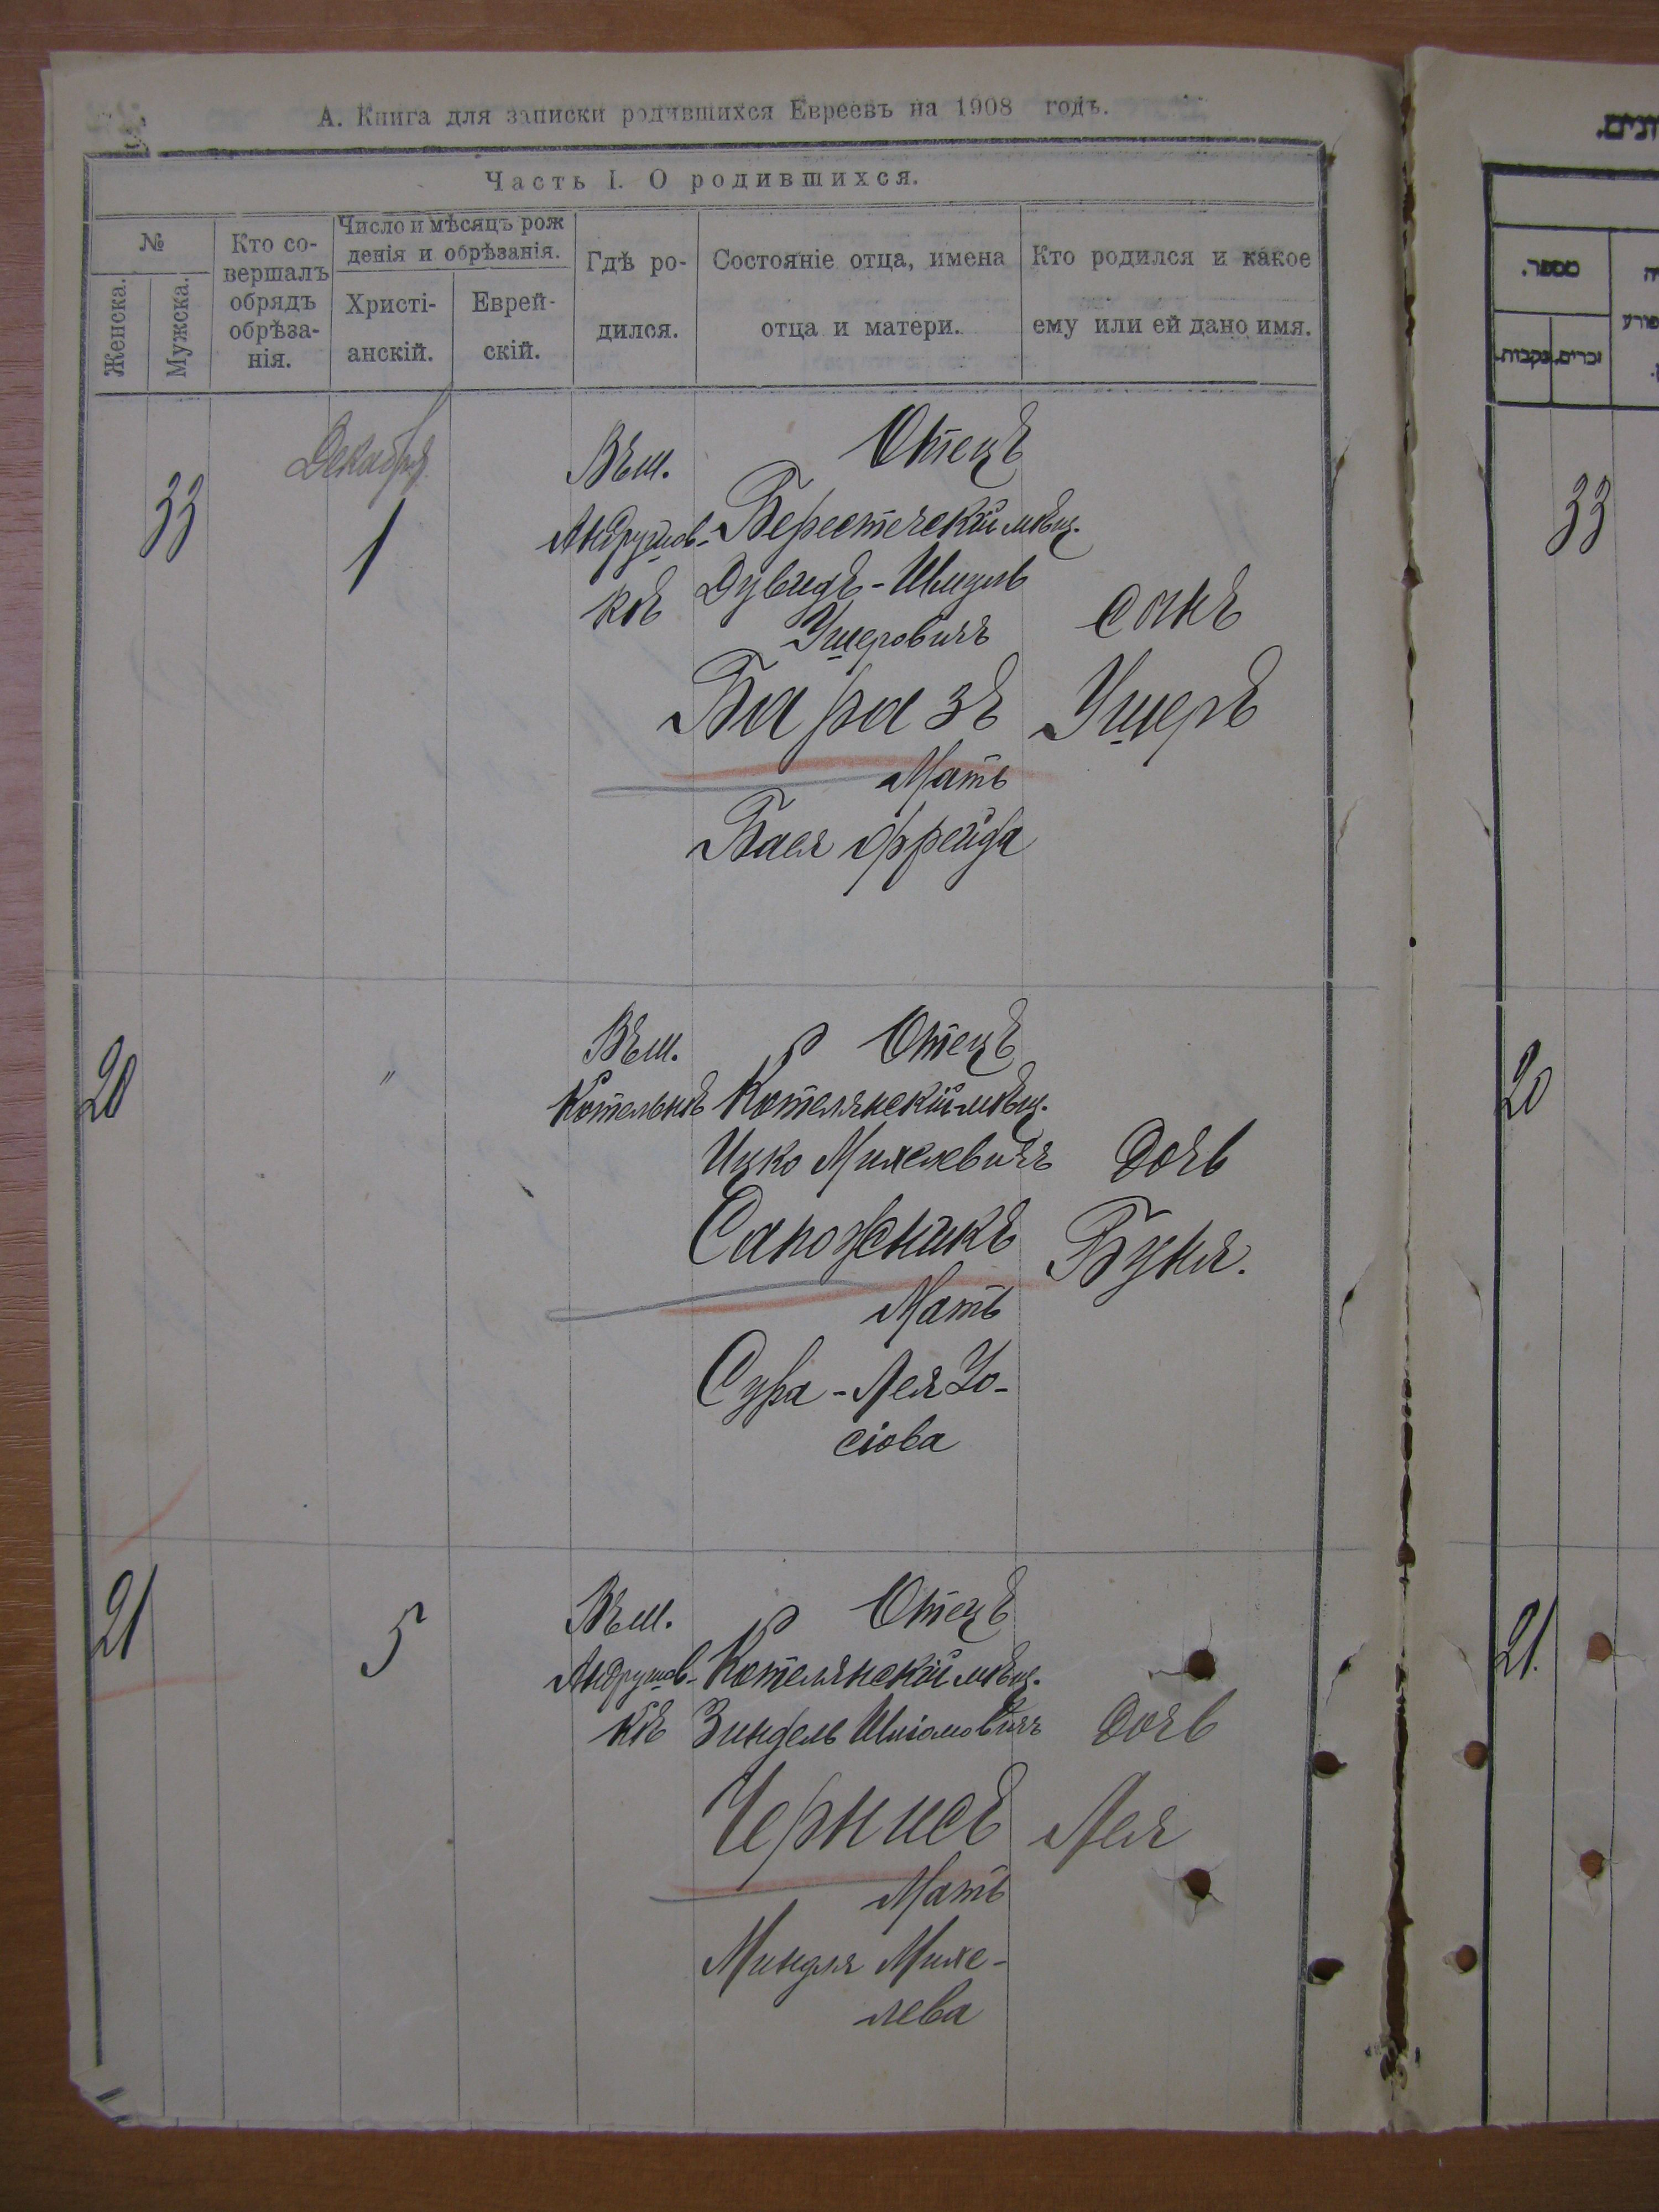 А. Книга для записки родившихся Евреевъ на 1908 годъ.
Часть I. О родившихся.
№
Женска.
Мужска.
Кто со-
вершалъ
обрядъ
обрѣза-
нія.
Число и мѣсяцъ рож
денія и обрѣзанія.
Христі-
анскій.
Еврей-
скій.
Гдѣ ро-
дился.
Состояніе отца, имена
отца и матери.
Кто родился и какое
ему или ей дано имя.
33
Декабря
1
Въ м.
Андрушов-
кѣ
Отецъ
Берестечскій мѣщ.
Дувидъ-Шмуль
Ушеровичъ
Баразъ
Мать
Бася Фрейда
сынъ
Ушеръ
20
"
Въ м.
Котельнѣ
Отецъ
Котелянскій мѣщ.
Ицко Михелевичъ
Сапожникъ
Мать
Сура-Лея Іо-
сіова
дочь
Буня.
21
5
Въ м.
Андрушов-
кѣ
Отецъ
Котелянскій мѣщ.
Зиндель Шліомовичъ
Чернисъ
Мать
Миндля Михе-
лева
дочь
Лея
מספר.
זכרים.
נקבות.
33
20
21.